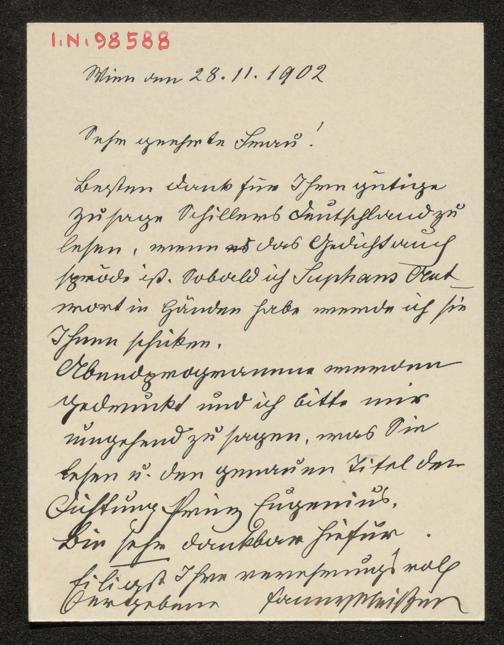 I.N. 98588
Wien den 28.11.1902
Sehr geehrte Frau!
Besten Dank für Ihre gütige
Zusage Schillers Deutschland zu
lesen, wenn das Gedicht auch
spröde ist. Sobald ich Suphans Ant-
wort in Händen habe werde ich sie
Ihnen schicken.
Abendprogramme werden
gedruckt und ich bitte mir
umgehend zu sagen, was Sie
lesen u. den genauen Titel der
Dichtung Prinz Eugenius.
Bin sehr dankbar hiefür.
Eiligst Ihre verehrungsvoll
Ergebene